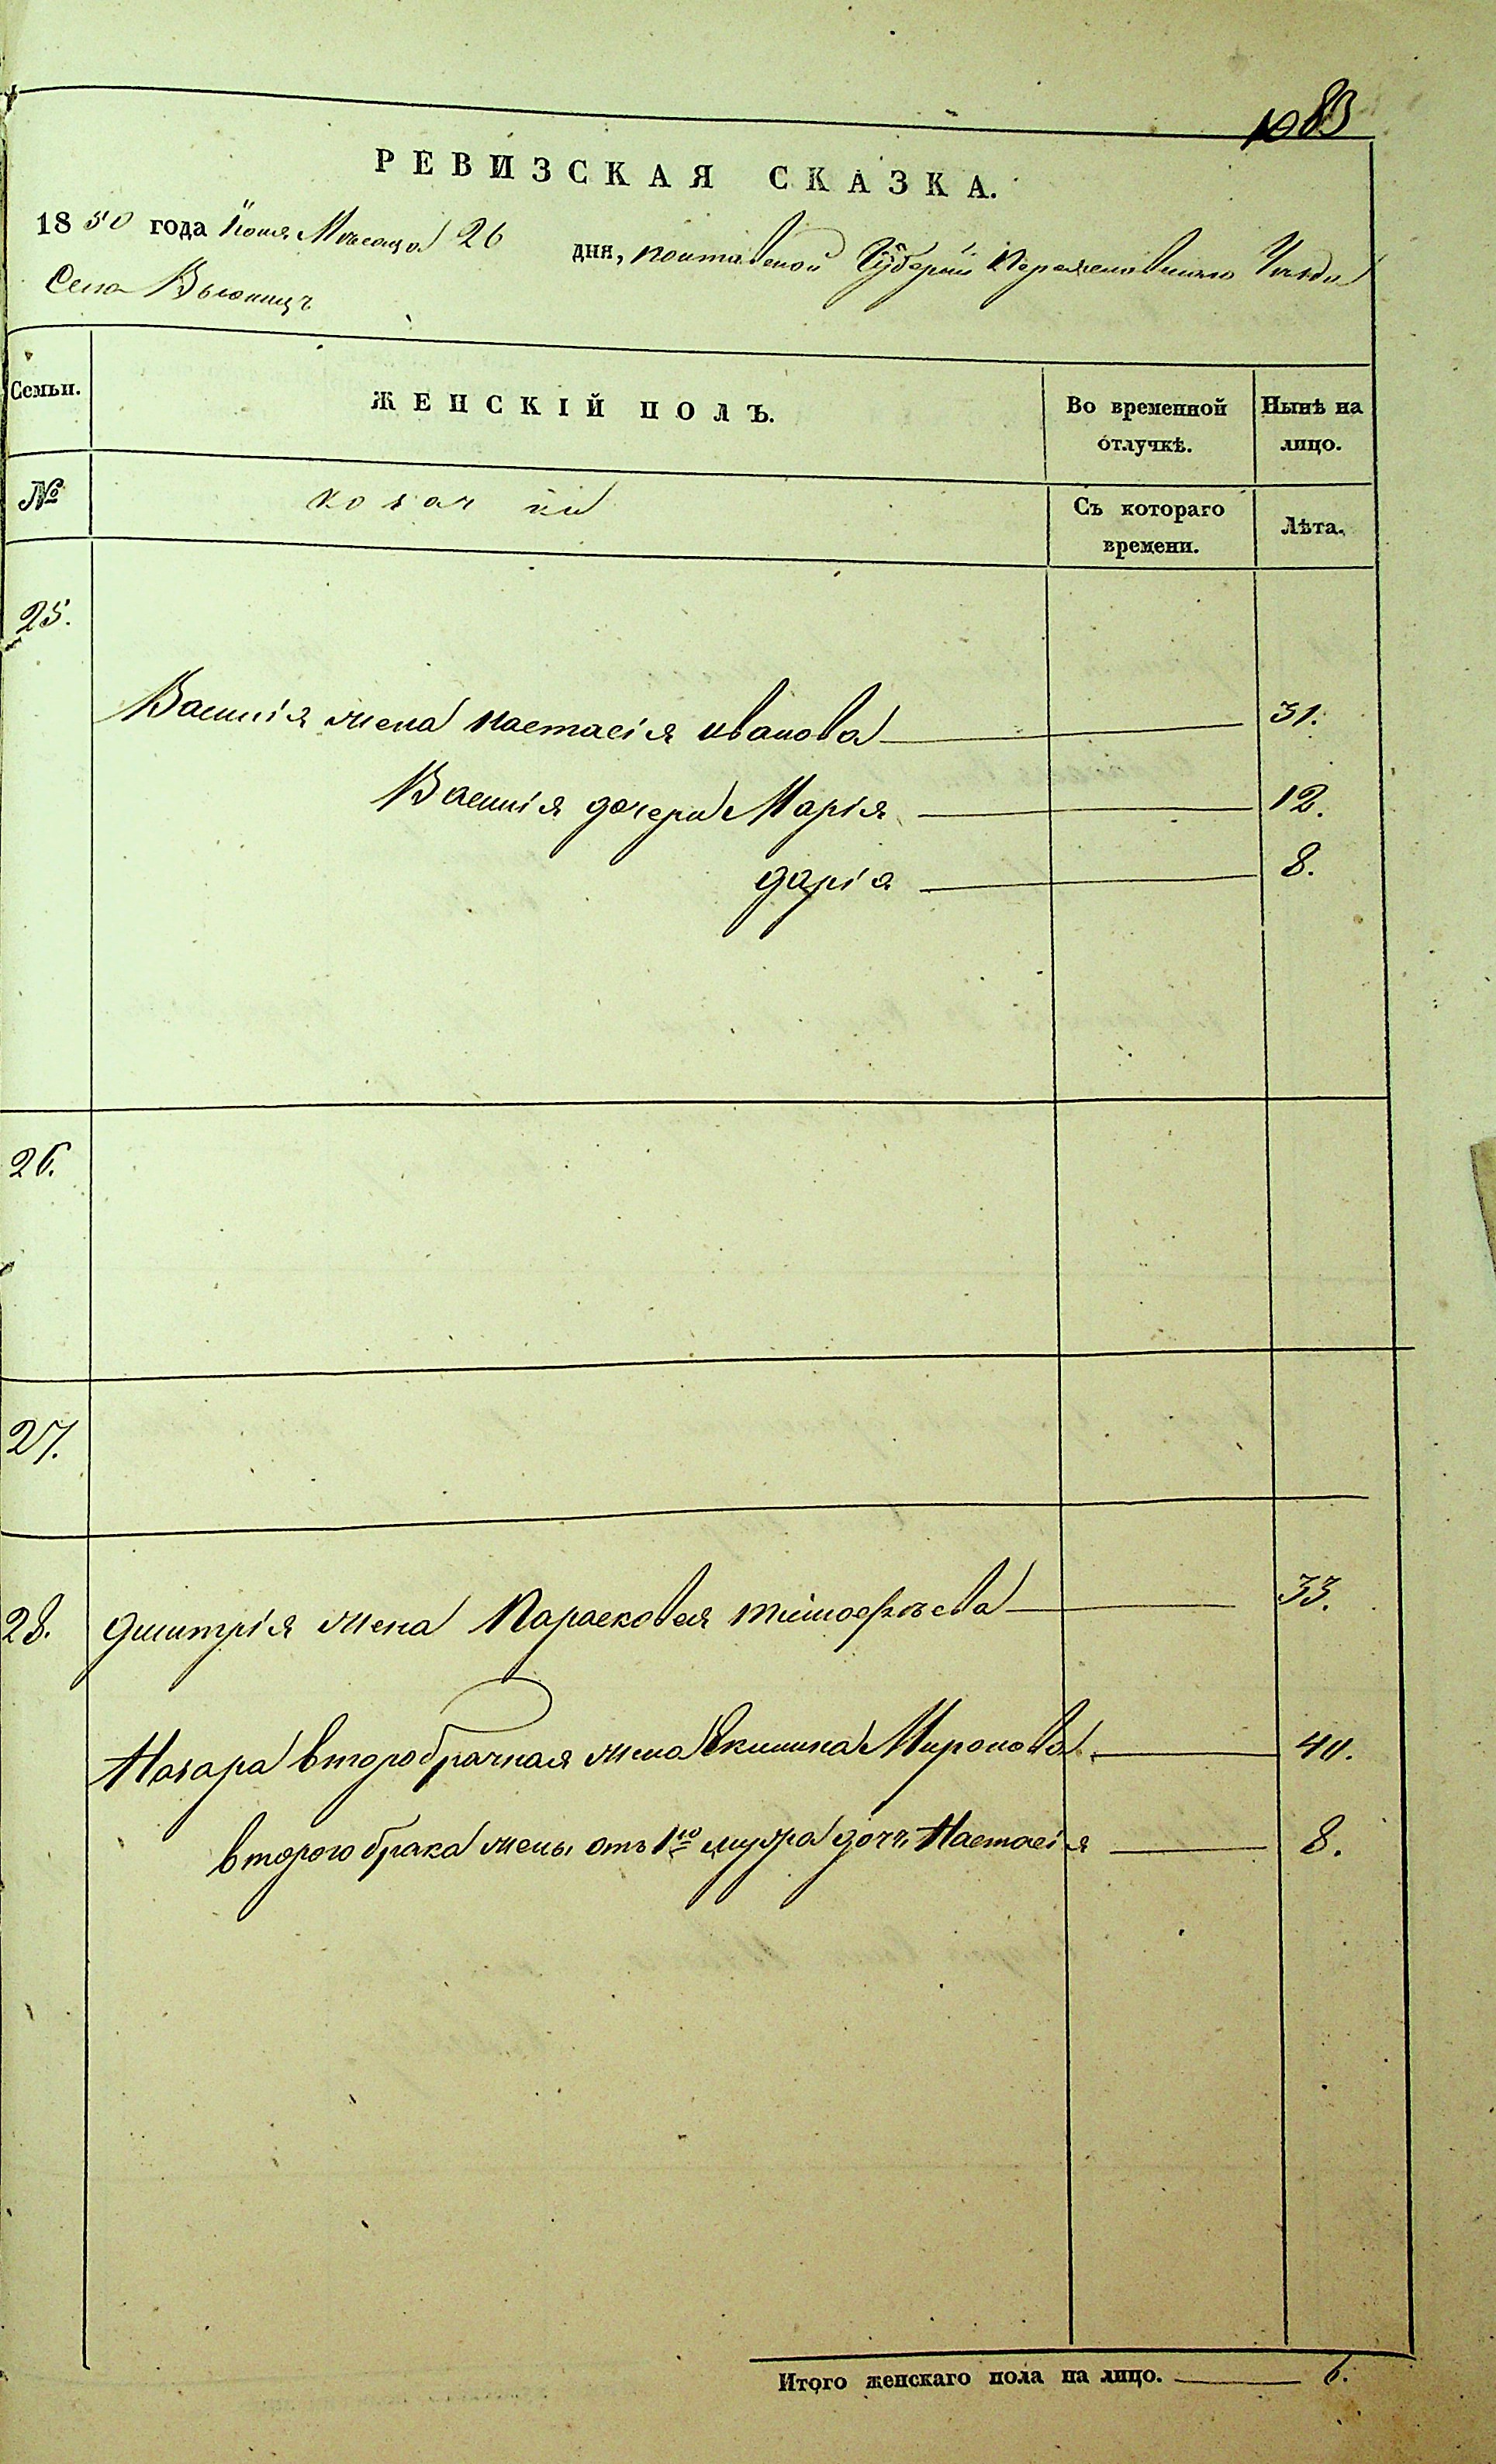 1083
РЕВИЗСКАЯ СКАЗКА.
1850 года Іюня Мѣсяца 26 дня, полтавской Губерніи Переяславскаго Уѣзда
Села Вьюнищъ
Семьи. ЖЕНСКІЙ ПОЛЪ. Во временной отлучкѣ. Нынѣ на лицо.
№ козачки Съ котораго времени. Лѣта.
25.
Василія жена настасія иванова 31.
Василія дочери Марія 12.
дарія 8.
26.
27.
28. дмитрія жена Парасковея тимофѣева 33.
Назара второбрачная жена Екилина Миронова 40.
второго брака жены отъ 1го мужа дочь Настасія 8.
Итого женскаго пола на лицо. 6.